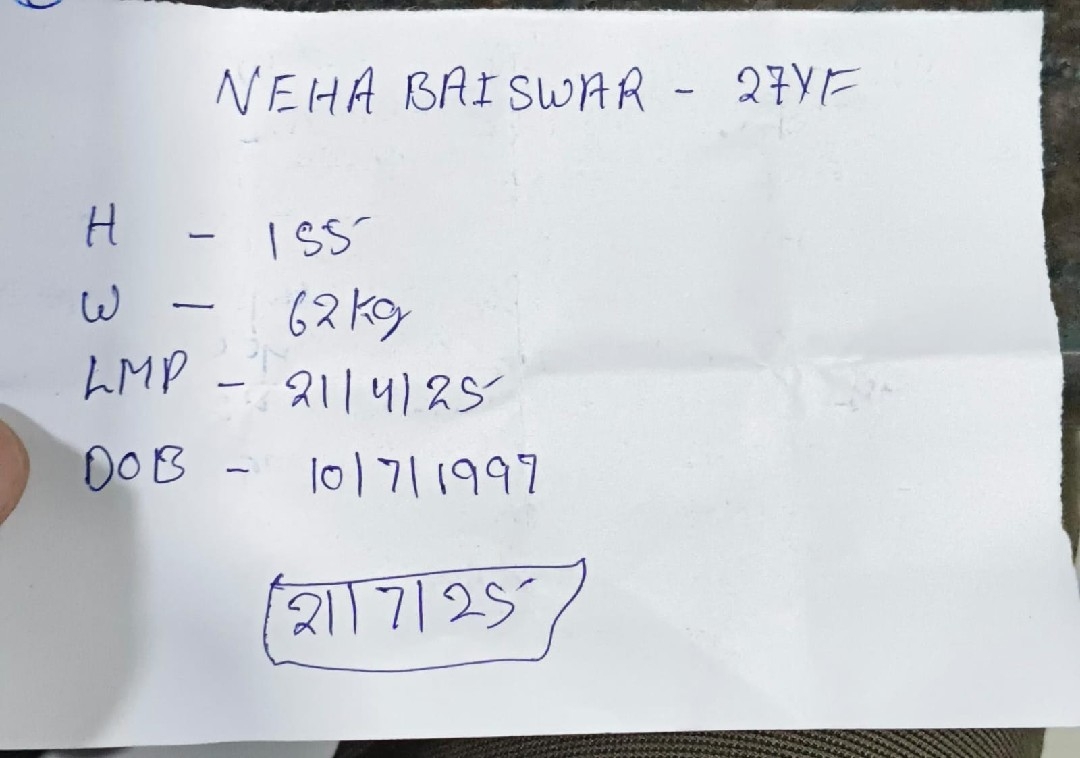 NEHA BAISWAR - 27YF
H - 155
W - 62kg
LMP - 21/4/25
DOB - 10/7/1997
21/7/25